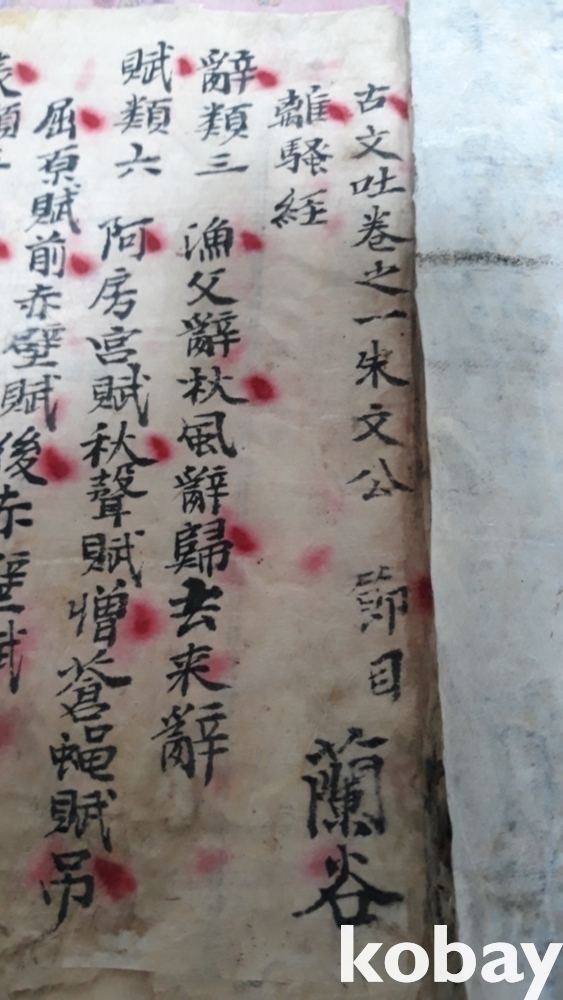 古文吐卷之一朱文公 節目
離騷經 蘭谷
辭類三 漁父辭秋風辭歸去来辭
賦類六 阿房宮賦秋聲賦憎蒼蝇賦吊
屈原賦前赤壁賦後赤壁賦
類
kobay